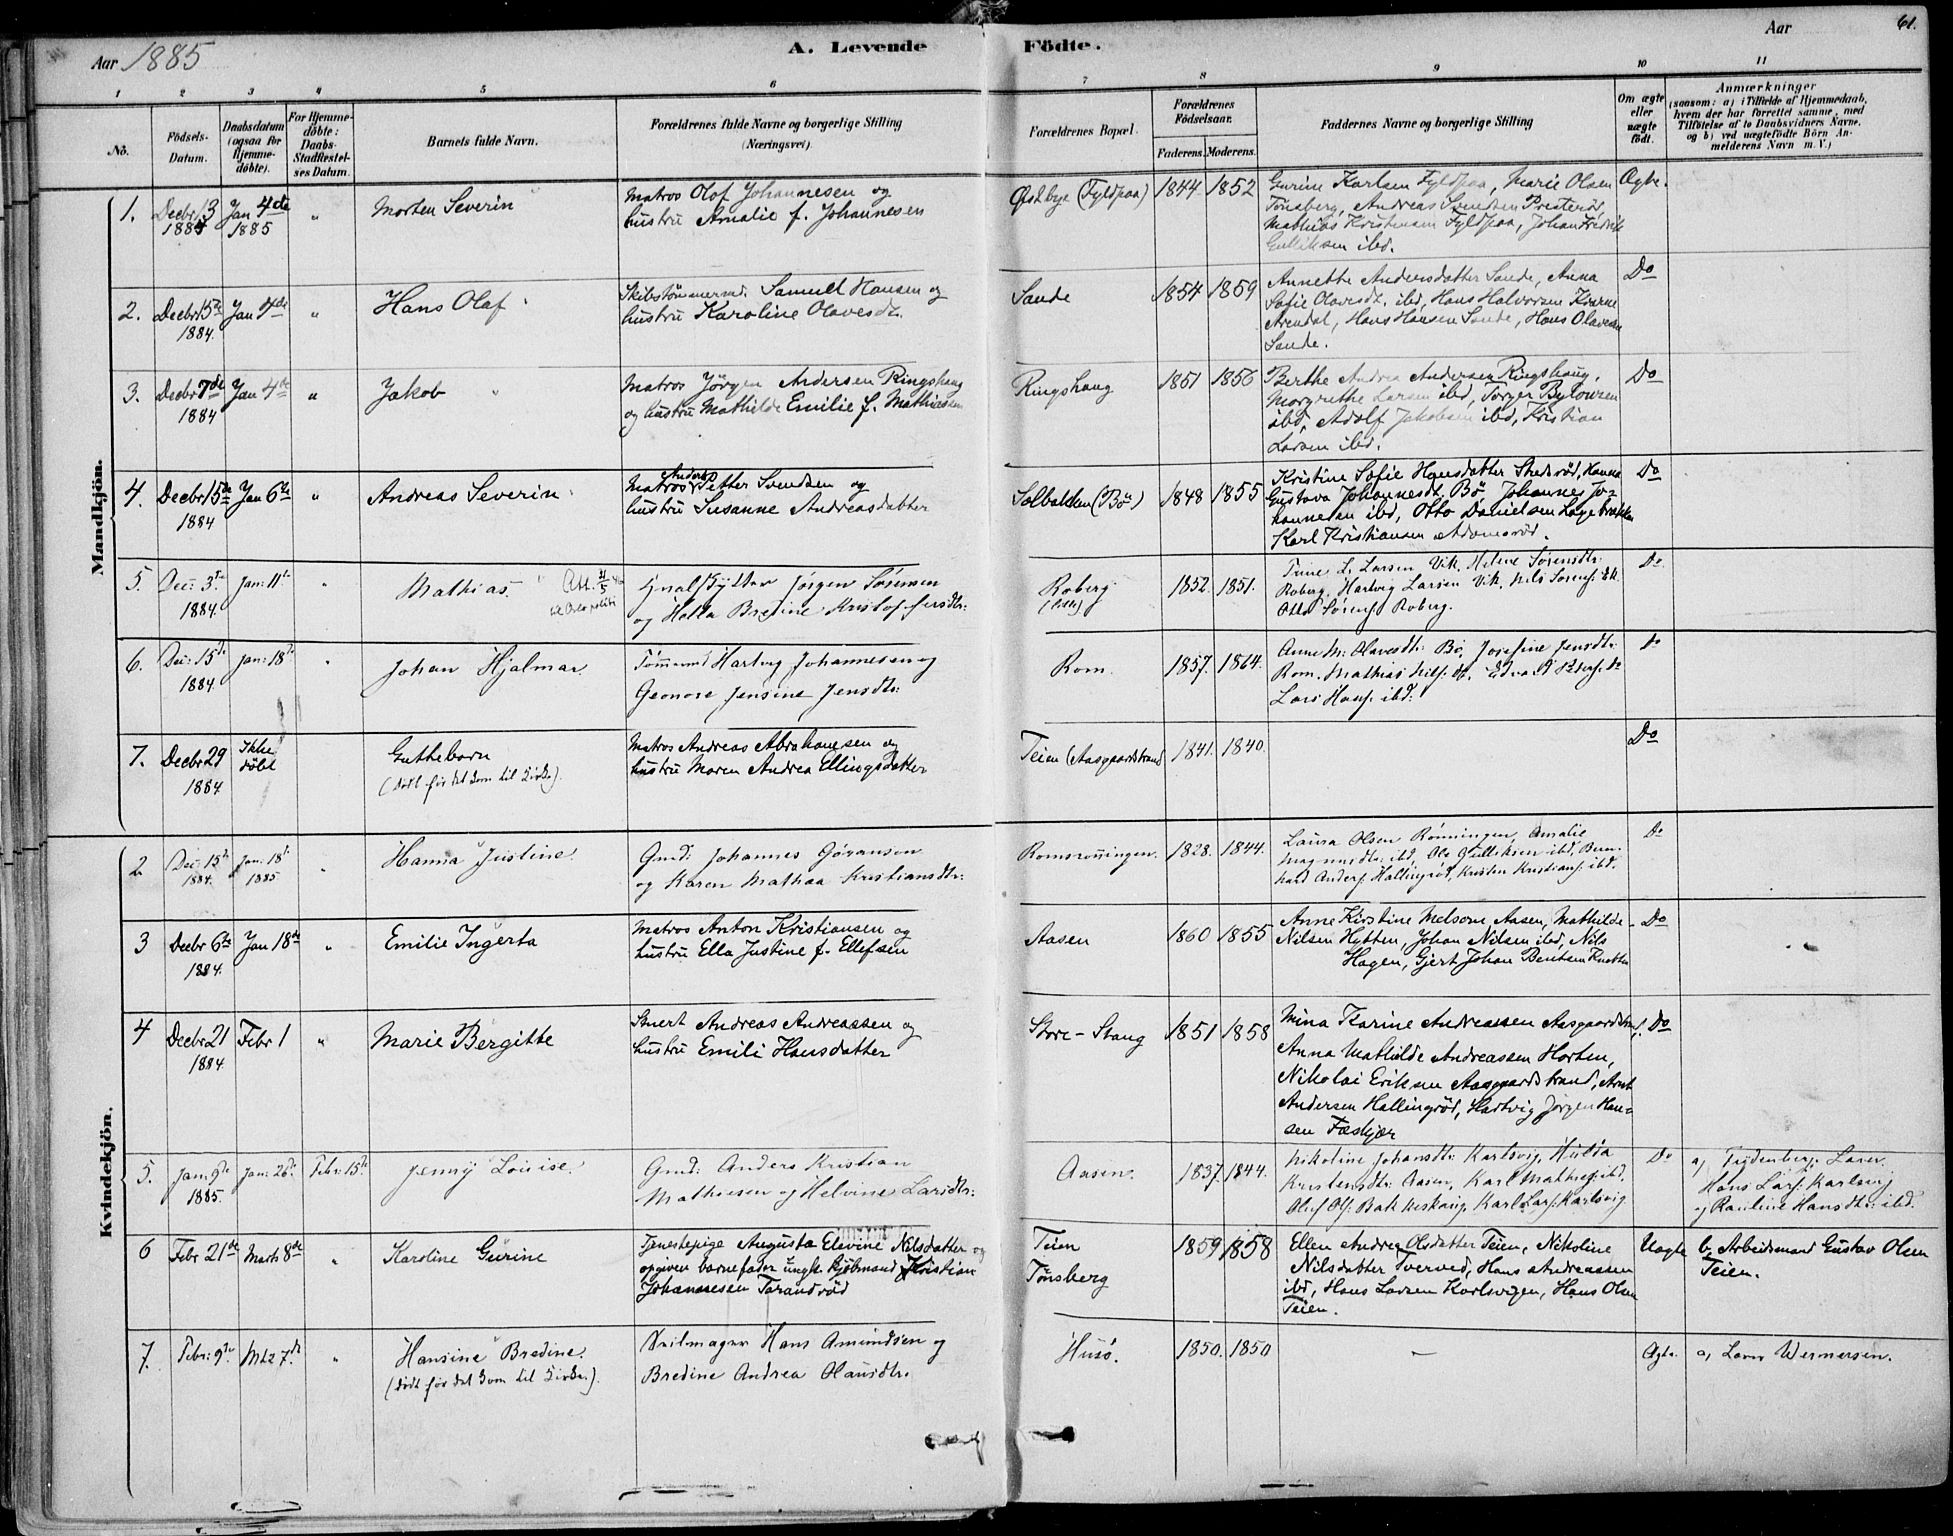 Aar 1885
A. Levende Födte.
Aar
61.
1 2 3 4 5 6 7 8 9 10 11
No.
Födsels-Datum.
Daabsdatum (ogsaa for Hjemmedöbte).
For Hjemmedöbte: Daabs-Stadfestelses Datum.
Barnets fulde Navn.
Forældrenes fulde Navne og borgerlige Stilling (Næringsvei).
Forældrenes Bopæl.
Forældrenes Födselsaar.
Faderens. Moderens.
Faddernes Navne og borgerlige Stilling
Om ægte eller uægte födt.
Anmærkninger
(saasom: a) i Tilfælde af Hjemmedaab, hvem der har forrettet samme, med Tilföielse af to Daabsvidners Navne, og b) ved uægtefödte Börn Anmelderens Navn m. V.)
Mandkjön.
1. Decbr 13 1884 Jan 4de 1885 " Morten Severin
Matros Olof Johannesen og
hustru Amalie f. Johannesen
Østbye (Fyldpaa) 1844 1852
Gurine Karlsen Fyldpaa, Marie Olsen
Tönsberg, Andreas Svendsen Presterød,
Mathias Kristensen Fyldpaa, Johan Fredrik
Gulliksen ibd.
Ægte.
2. Decbr 5te 1884. Jan 4de " Hans Olaf
Skibstömmermd. Samuel Hansen og
hustru Karoline Olavesdt.
Sande 1854 1859
Annette Andersdatter Sande, Anna
Sofie Olavesdt. ibd, Hans Halvorsen
Arendal, Hans Hansen Sande, Hans Olavesen
Sande.
Do
3. Decbr 7de 1884 Jan 4de " Jakob
Matros Jörgen Andersen Ringshaug
og hustru Mathilde Emilie f. Mathiesen
Ringshaug 1851 1856
Berthe Andrea Andersen Ringshaug,
Margrethe Larsen ibd, Torger Bytowzen
ibd, Adolf Jakobsen ibd, Kristian
Larsen ibd.
Do
4. Decbr 15de 1884 Jan 6te " Andreas Severin
Matros Anders Petter Svendsen og
hustru Susanne Andreasdatter
Solbakken (Bö) 1848 1855
Kristine Sofie Hansdatter Skedsröd, Hanna
Gustava Johannesdt. Bö, Johannes Jo-
hannesen ibd, Otto Danielsen Lagebrekke
Karl Kristiansen Adamsröd.
Do
5. Dec: 3die 1884. Jan: 11te " Mathias.
Att. 21/5 40
til Oslo politi
Jörgen Sörensen
og Hella Bredine Kristoffersdtr:
Roberg 1852. 1851.
Trine L. Larsen Vik, Helene Sörensdtr:
Roberg, Hartvig Larsen Vik, Nils Sörens. Ek
Otto Sörens. Roberg.
Do
6. Dec: 15de 1884. Jan: 18de " Johan Hjalmar.
Tömmermd Hartvig Johannesen og
Geonore Jensine Jensdtr:
Rom. 1857. 1864.
Anne M: Olavesdtr: Bö, Josefine Jensdtr:
Rom. Mathias Nils: do, Edvard Peders. do
Lars Hans. ibd:
Do
7. Decbr 29 1884. Ikke döbt Guttebarn
(Död för det kom til Kirke).
Matros Andreas Abrahamsen og
hustru Maren Andrea Ellingsdatter
Teien (Aasgaardstrand) 1841. 1840.
Do
Kvindekjön.
2 Dec: 15de 1884. Jan: 18de 1885 " Hanna Justine.
Gmd: Johannes Göranson
og Karen Mathea Kristiansdtr:
Romsronningen. 1828. 1844.
Laura Olsen Rönningen, Amalie
Magnusdtr: ibd, Ole Gulliksen ibd, Bern-
hard Anders. Hallingröd, Kristen Kristians. ibd.
Do
3 Decbr 6te 1884. Jan 18de " Emilie Ingerta
Matros Anton Kristiansen og
hustru Ella Justine f. Ellefsen
Aasen 1860 1855
Anne Kirstine Melsom Aasen, Mathilde
Nilsen Hytten, Johan Nilsen ibd, Nils
Hagen, Gjert Johan Bentsen Knatten
Do
4 Decbr 21 1884. Febr 1 " Marie Bergitte
Smert Andreas Andreassen og
hustru Emili Hansdatter
Store-Stang 1851 1858
Mina Karine Andreassen Aasgaardstrand,
Anna Mathilde Andreassen Horten,
Nikolai Eriksen Aasgaardstrand, Arnt
Andersen Hallingröd, Hartvig Jörgen Han-
sen Fæskjær
Do
5. Jan: 9de 1885. Jan: 26de Febr: 15de Jenny Louise.
Gmd: Anders Kristian
Mathiesen og Helvine Larsdtr:
Aasen. 1837. 1844.
Nikoline Johansdtr: Karlsvig, Hulda
Kristensdtr: Aasen, Karl Mathies: ibd.
Oluf Ols. Bakkeskaug, Karl Lars. Karlsvig
Do
a, Lars
Hans Lars. Karlsvig
og Pauline Hansdtr: ibd.
6 Febr 21de Marts 8de " Karoline Gurine
Tjenestepige Augusta Elevine Nilsdatter og
opgiven barnefader ungk. kjöbmand Kristian
Johannesen Tarandröd
Teien
Tønsberg
1859 1858
Ellen Andrea Olsdatter Teien, Nikoline
Nilsdatter Tverved, Hans Andreassen
ibd, Hans Larsen Karlsvigen, Hans Olsen
Teien.
Uægte
b, Arbeidsmand Gustav Olsen
Teien.
7. Febr: 9de Mts 7de " Hansine Bredine.
(Död för det kom til Kirke.).
Seilmager Hans Amundsen og
Bredine Andrea Olausdtr.
Husö. 1850. 1850 — Ægte.
a, Lars Wernersen.